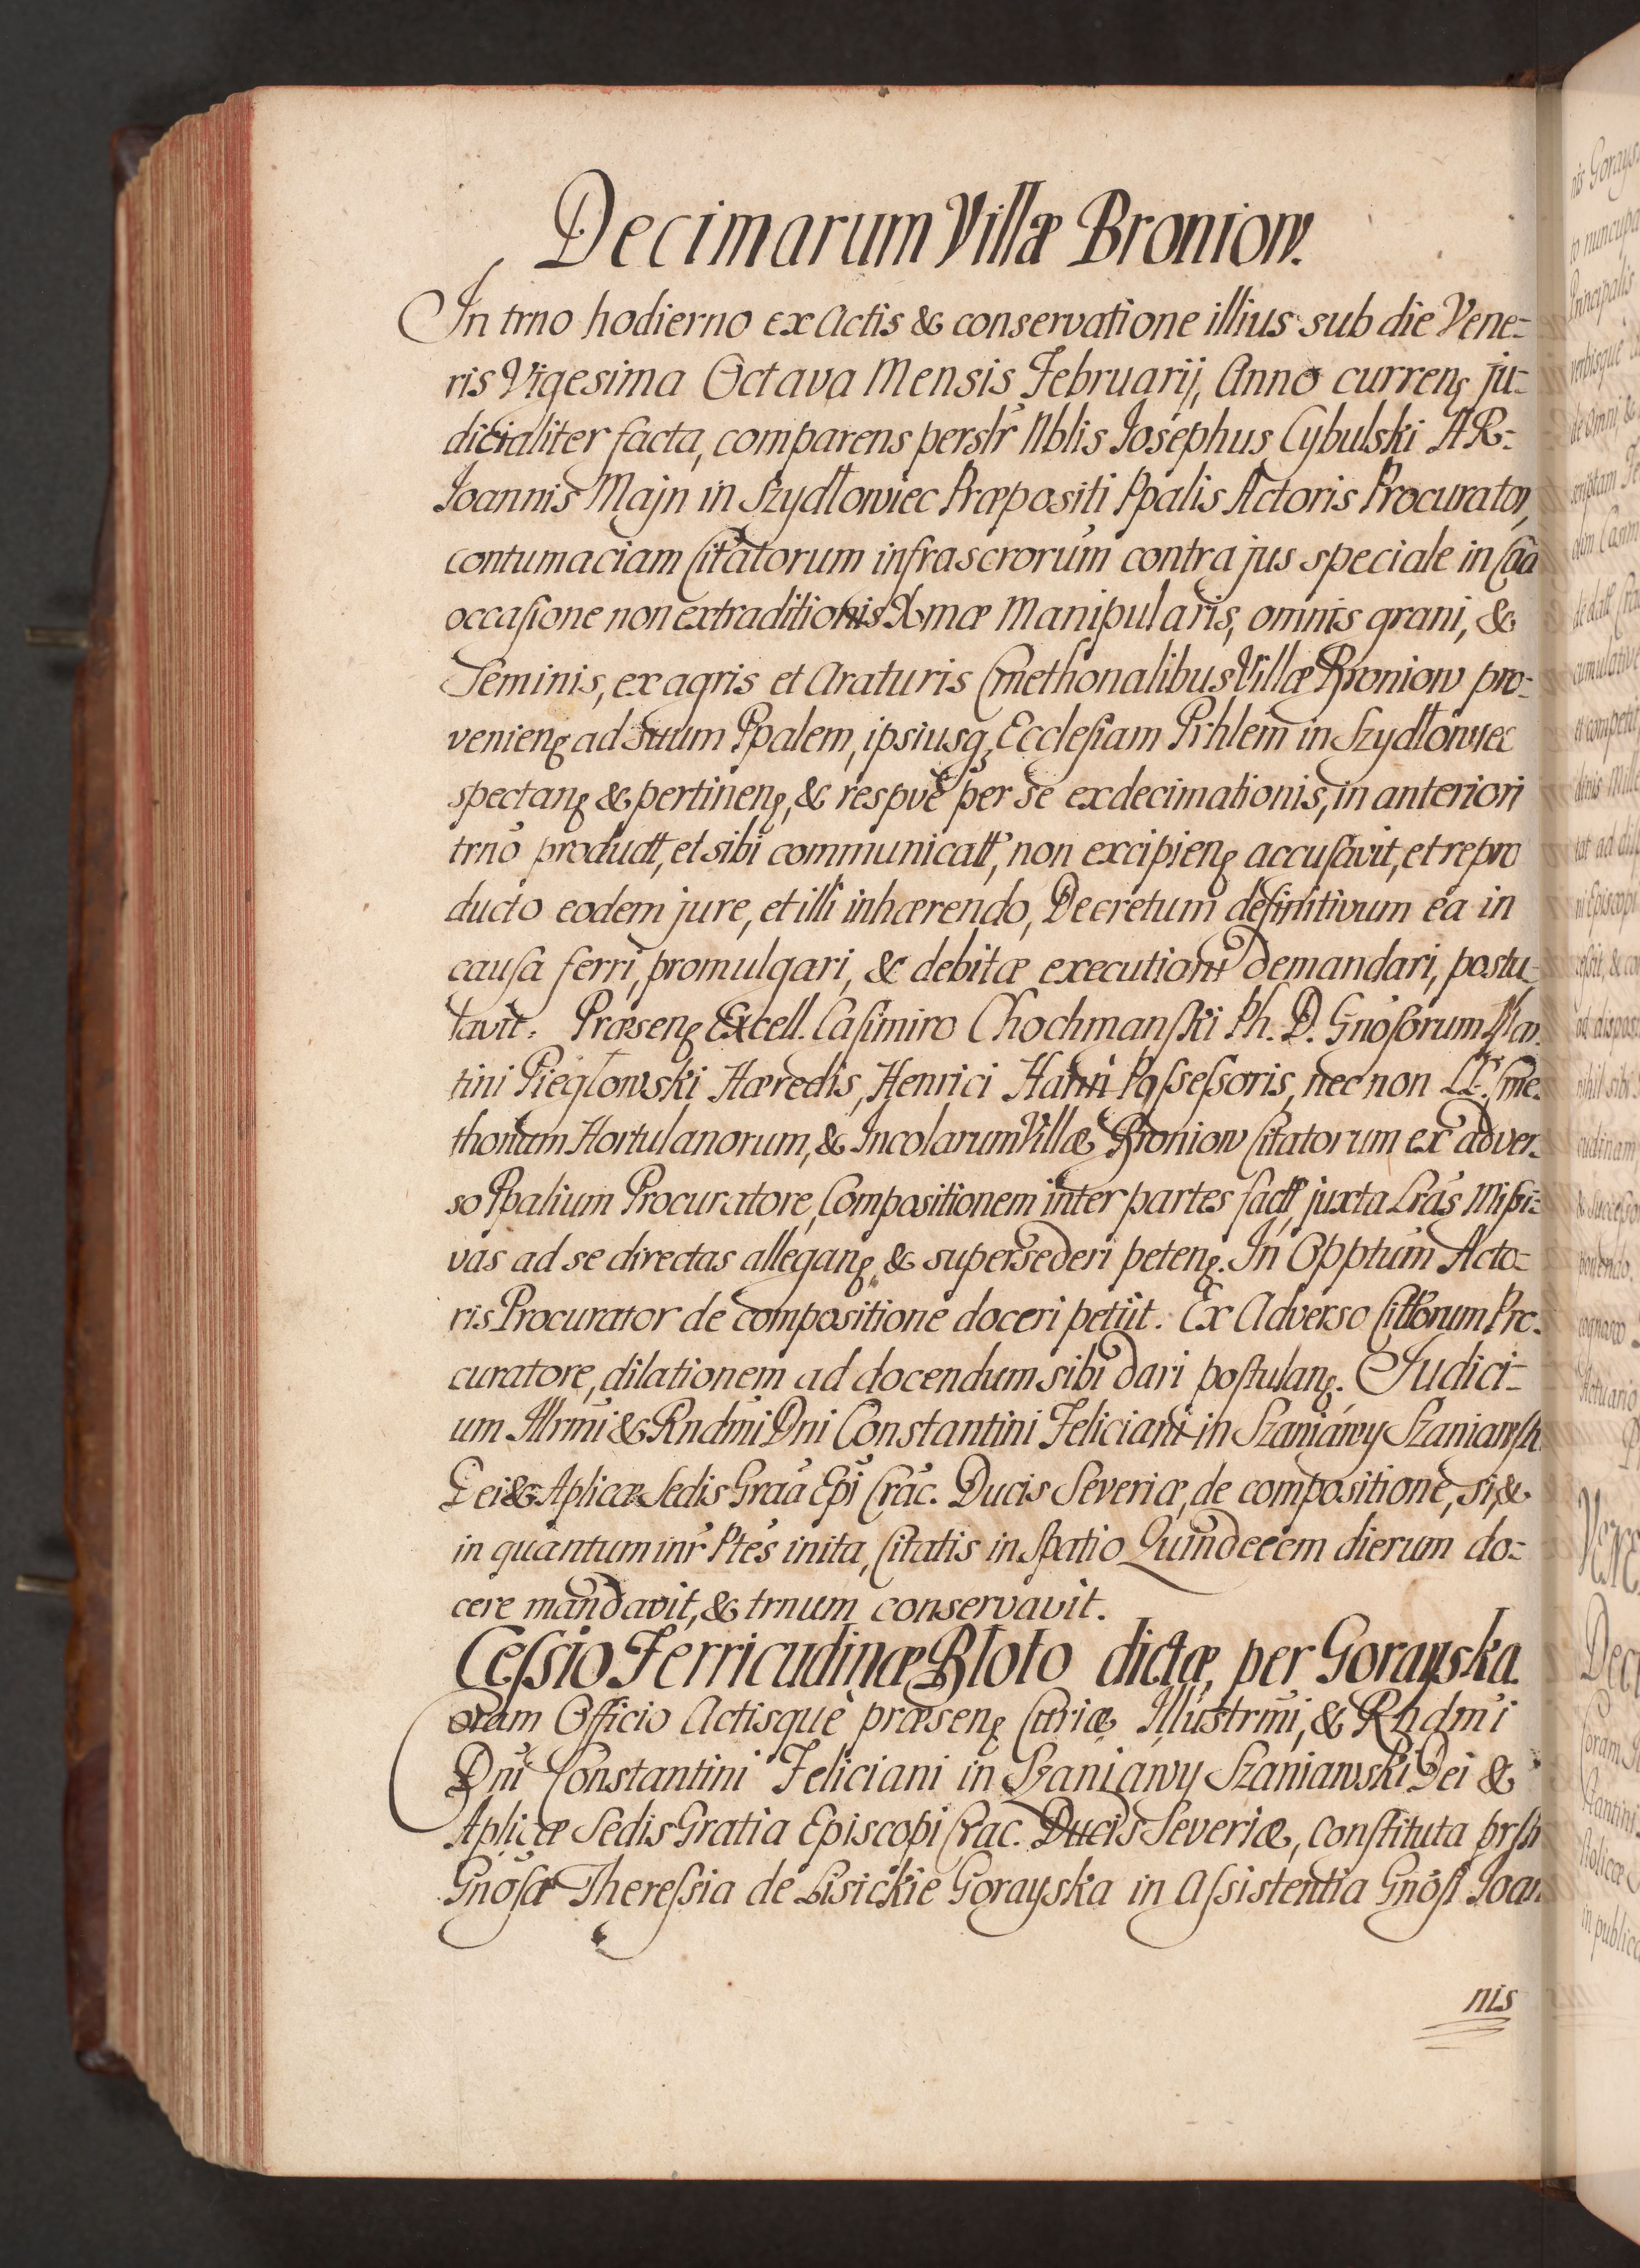 Decimarum Villæ Broniow.
In trno hodierno ex Actis & conservatione illius sub die Vene=
ris Vigesima Octava Mensis Februarij, Anno currenꝭ ju=
dicialiter facta, comparens perslr Nblis Josephus Cybulski AR=
Joannis Majn in Szydłowiec Præpositi Ppalis Actoris Procurator,
contumaciam Citatorum infrascrorum contra jus speciale in Caa
occasione non extraditionis Xmæ Manipularis, omnis grani, &
Seminis, ex agris et Araturis Cmethonalibus Villæ Broniow pro=
venienꝭ ad suum Ppalem, ipsiusq Ecclesiam Prhlem in Szydłowiec
spectanꝭ & pertinenꝭ, & respvè per se exdecimationis, in anteriori
trno product, et sibi communicatt, non excipienꝭ accusavit, et repro
ducto eodem jure, et illi inhærendo, Decretum definitivum ea in
causa ferri, promulgari, & debitæ executioni demandari, postu=
lavit. Præsenꝭ Excell. Casimiro Chochmanski Ph. D. Gnosorum Mar
tini Pieglowski Hæredis, Henrici Hanni Possessoris, nec non LL. Cme=
thonum Hortulanorum, & Incolarum Villæ Broniow Citatorum ex adver=
so Ppalium Procuratore, Compositionem inter partes fact juxta Lras Missi=
vas ad se directas alleganꝭ & supersederi petenꝭ. In Opptum Acto=
ris Procurator de compositione doceri petiit. Ex Adverso Cittorum Pro=
curatore, dilationem ad docendum sibi dari postulanꝭ. Judici=
um Illrmi & Rndmi Dni Constantini Feliciani in Szaniawy Szaniawski
Dei & Aplicæ Sedis Graa Epi Crac. Ducis Severiæ, de compositione, si, &
in quantum inr Ptes inita, Citatis in spatio Quindecem dierum do=
cere mandavit, & trnum conservavit.
Cessio Ferricudinæ Błoto dictæ, per Gorayska.
Coram Officio Actisquè præsenꝭ Curiæ Illustrmi, & Rndmi
Dni Constantini Feliciani in Szaniawy Szaniawski Dei &
Aplicæ Sedis Gratia Episcopi Crac. Ducis Severiæ, constituta prslr
Gnosa Theressia de Lisickie Gorayska in Assistentia Gnosi Joan
nis